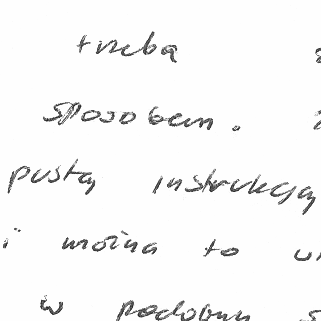 trzeba
sposobem.
pustą instrukcją
i można to
w podobny s